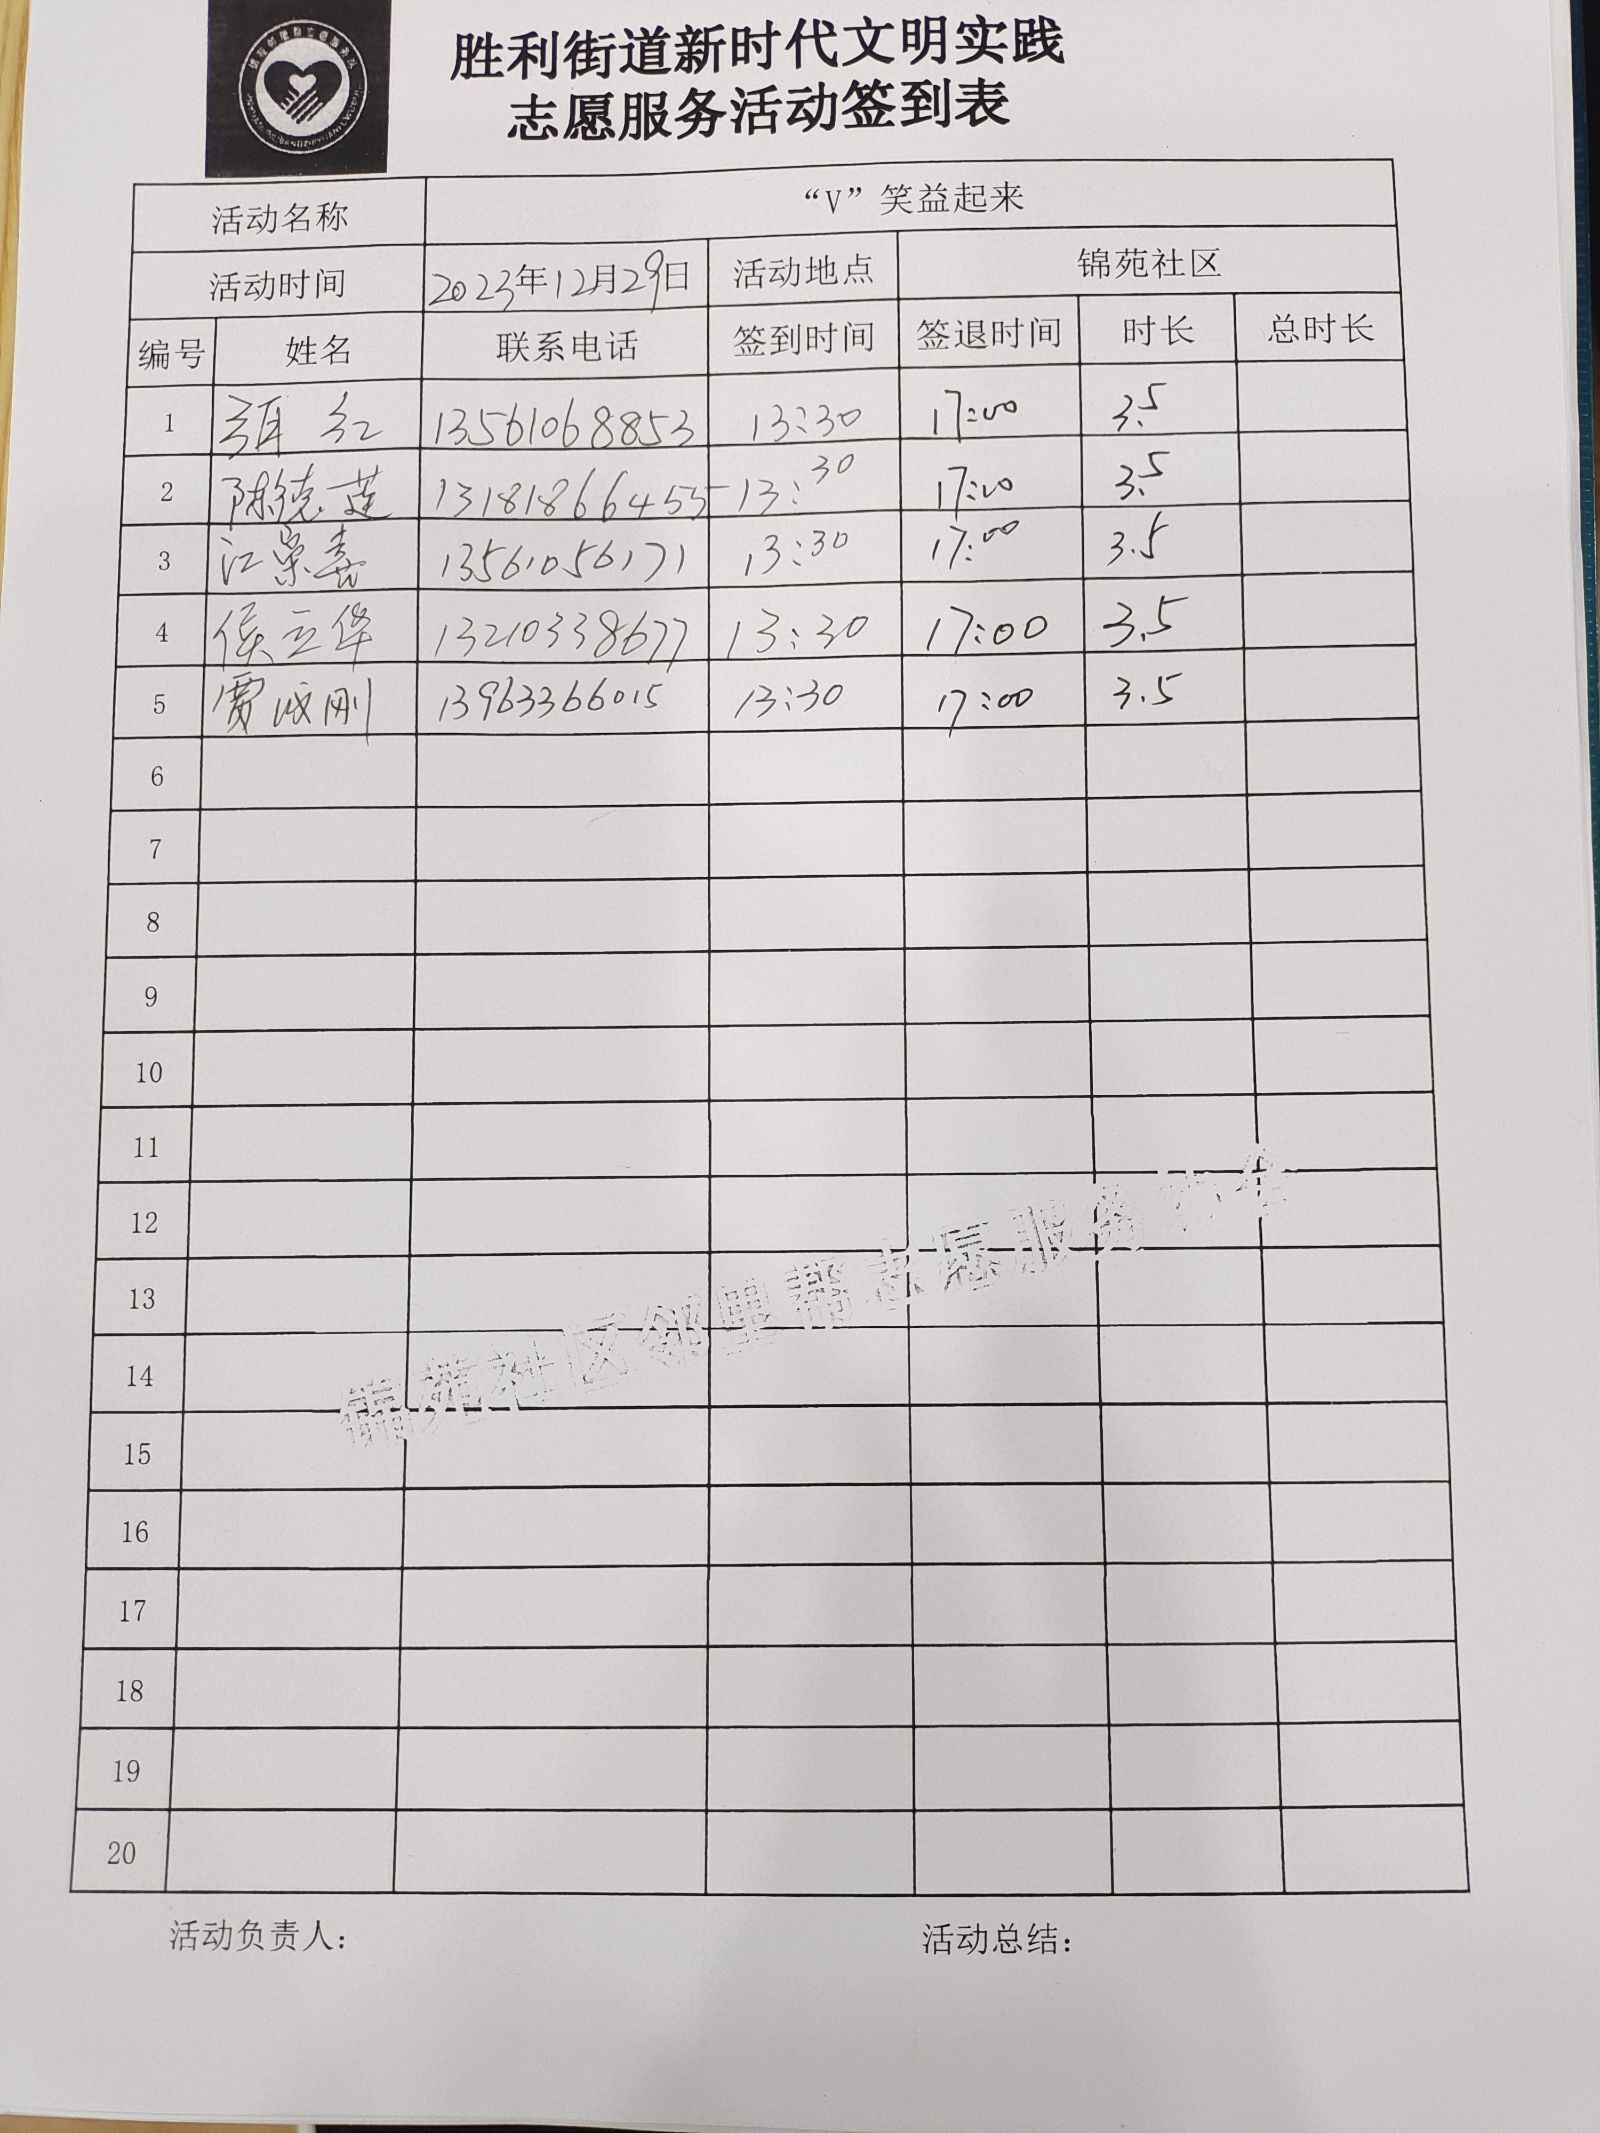 胜利街道新时代文明实践
志愿服务活动签到表
活动名称 “V”笑益起来
活动时间 2023年12月29日 活动地点 锦苑社区
编号 姓名 联系电话 签到时间 签退时间 时长 总时长
1 红 13561068853 13:30 17:00 3.5
2 陈德莲 13181866455 13:30 17:00 3.5
3 江荣喜 13561056171 13:30 17:00 3.5
4 侯立华 13210338677 13:30 17:00 3.5
5 贾成刚 13963366015 13:30 17:00 3.5
6
7
8
9
10
11
12
13
14
15
16
17
18
19
20
锦苑社区邻里帮志愿服务协会
活动负责人: 活动总结: